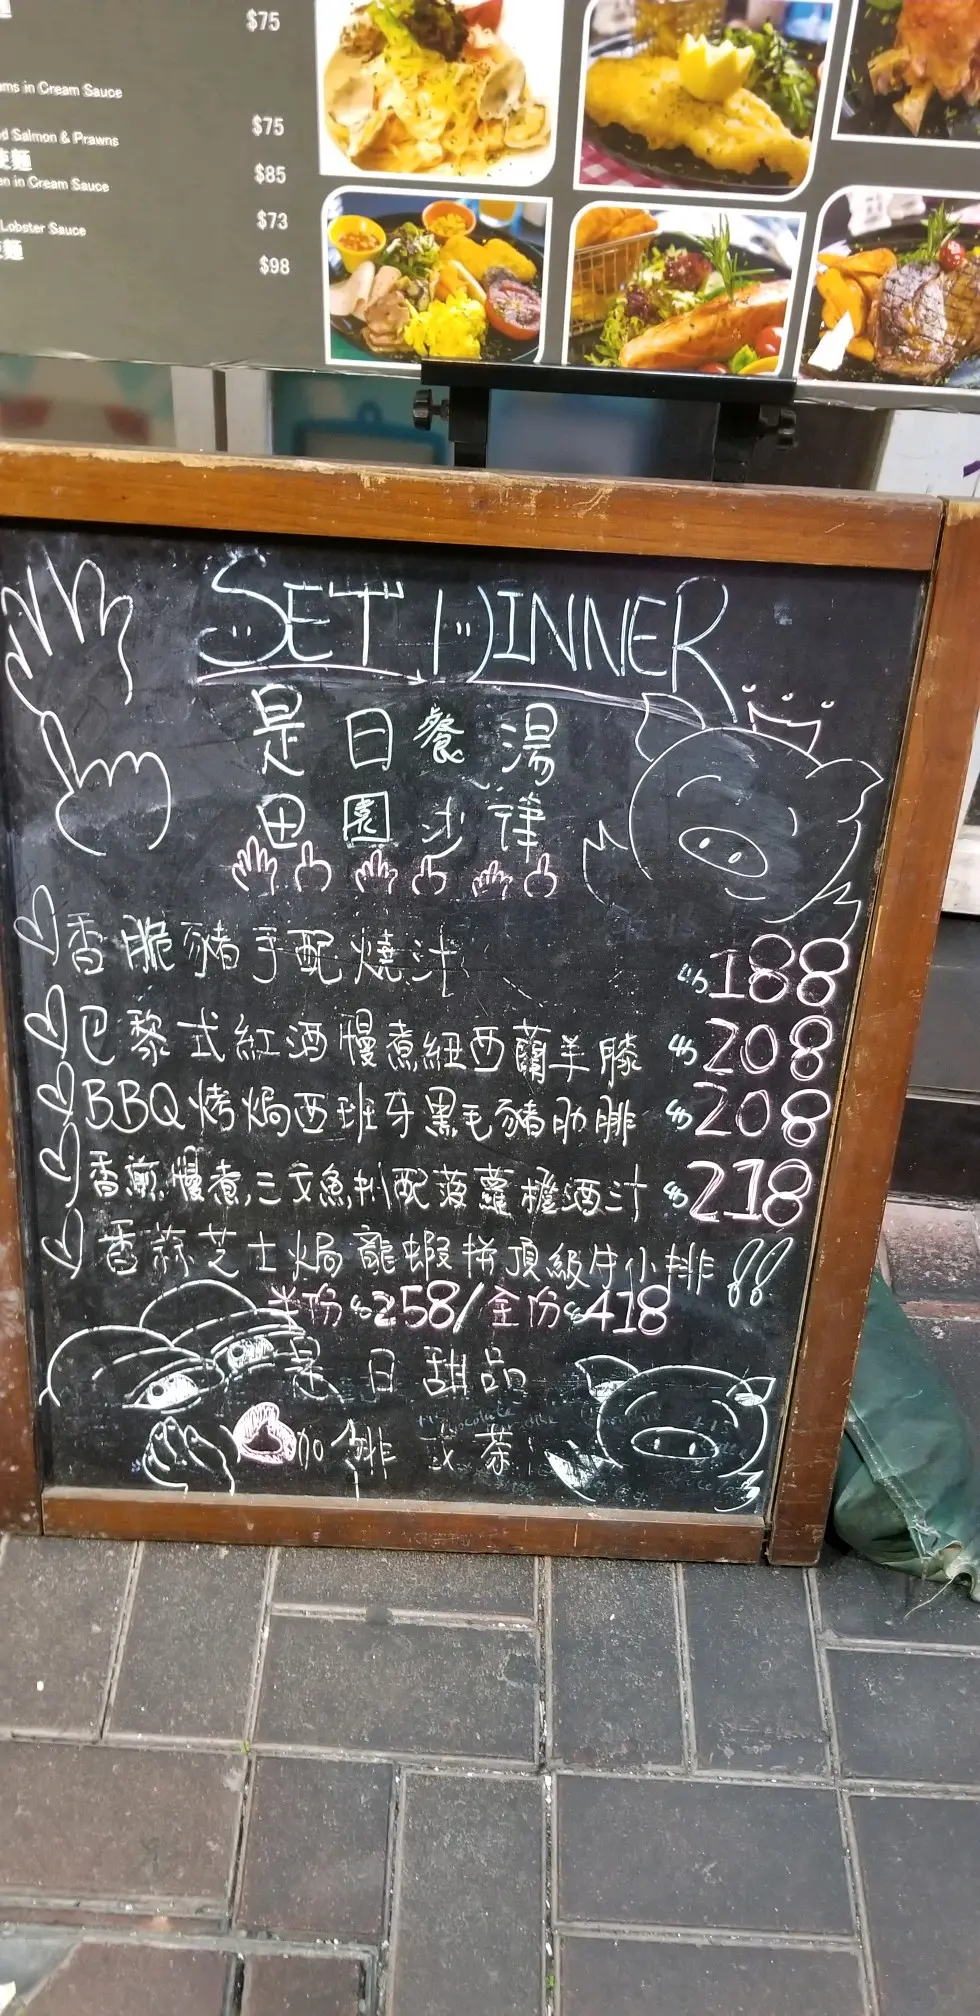 $75
ms in Cream Sauce
d Salmon & Prawns $75
麵
en in Cream Sauce $85
Lobster Sauce $73
麵
$98
SET DINNER
是日餐湯
田園沙律
香脆豬手配燒汁 $188
巴黎式紅酒慢煮紐西蘭羊膝 $208
BBQ烤焗西班牙黑毛豬肋排 $208
香煎慢煮三文魚扒配菠蘿橙酒汁 $218
香蒜芝士焗龍蝦拼頂級牛小排!!
半份$258/全份$418
是日甜品
咖啡 或 茶